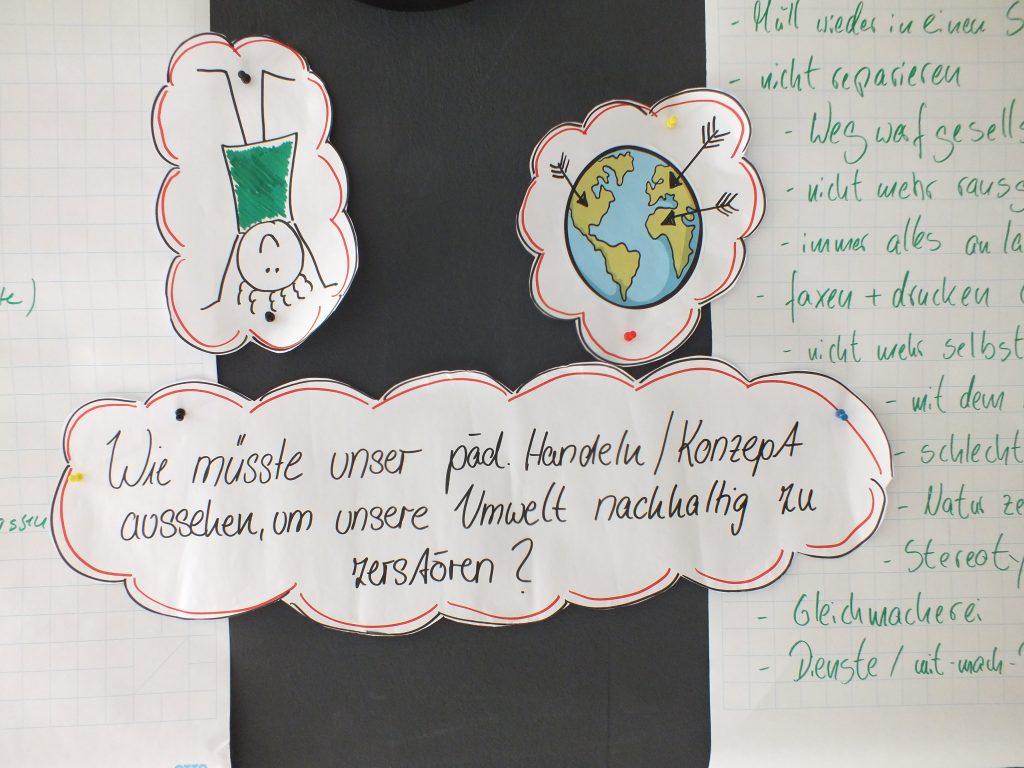 Wie müsste unser päd. Handeln / Konzept
aussehen, um unsere Umwelt nachhaltig zu
zerstören ?
- Müll wieder in einen S
- nicht reparieren
- Wegwerfgesells
- nicht mehr rausg
- immer alles an la
- faxen + drucken
- nicht mehr selbst
- mit dem
- schlecht
- Natur ze
- Stereoty
- Gleichmacherei
- Dienste / mit-mach-
te)
assen